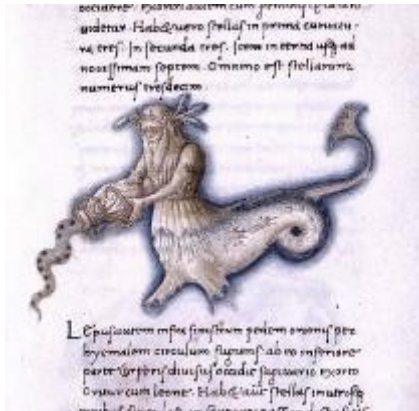 uidetur. Hab& uero stellas in prima curuatu
ra tres. In secunda tres. Item in tertia usq; ad
nouissimam septem. Omnino est stellarum
numerus tresdecim.
Lepus autem infra sinistrum pedem orionis per
hyemalem circulum fugiens. ab eo inferiore
parte corporis diuisus occidit sagittario exorto
Oritur cum leone. Hab& aut stellas in utrisq;